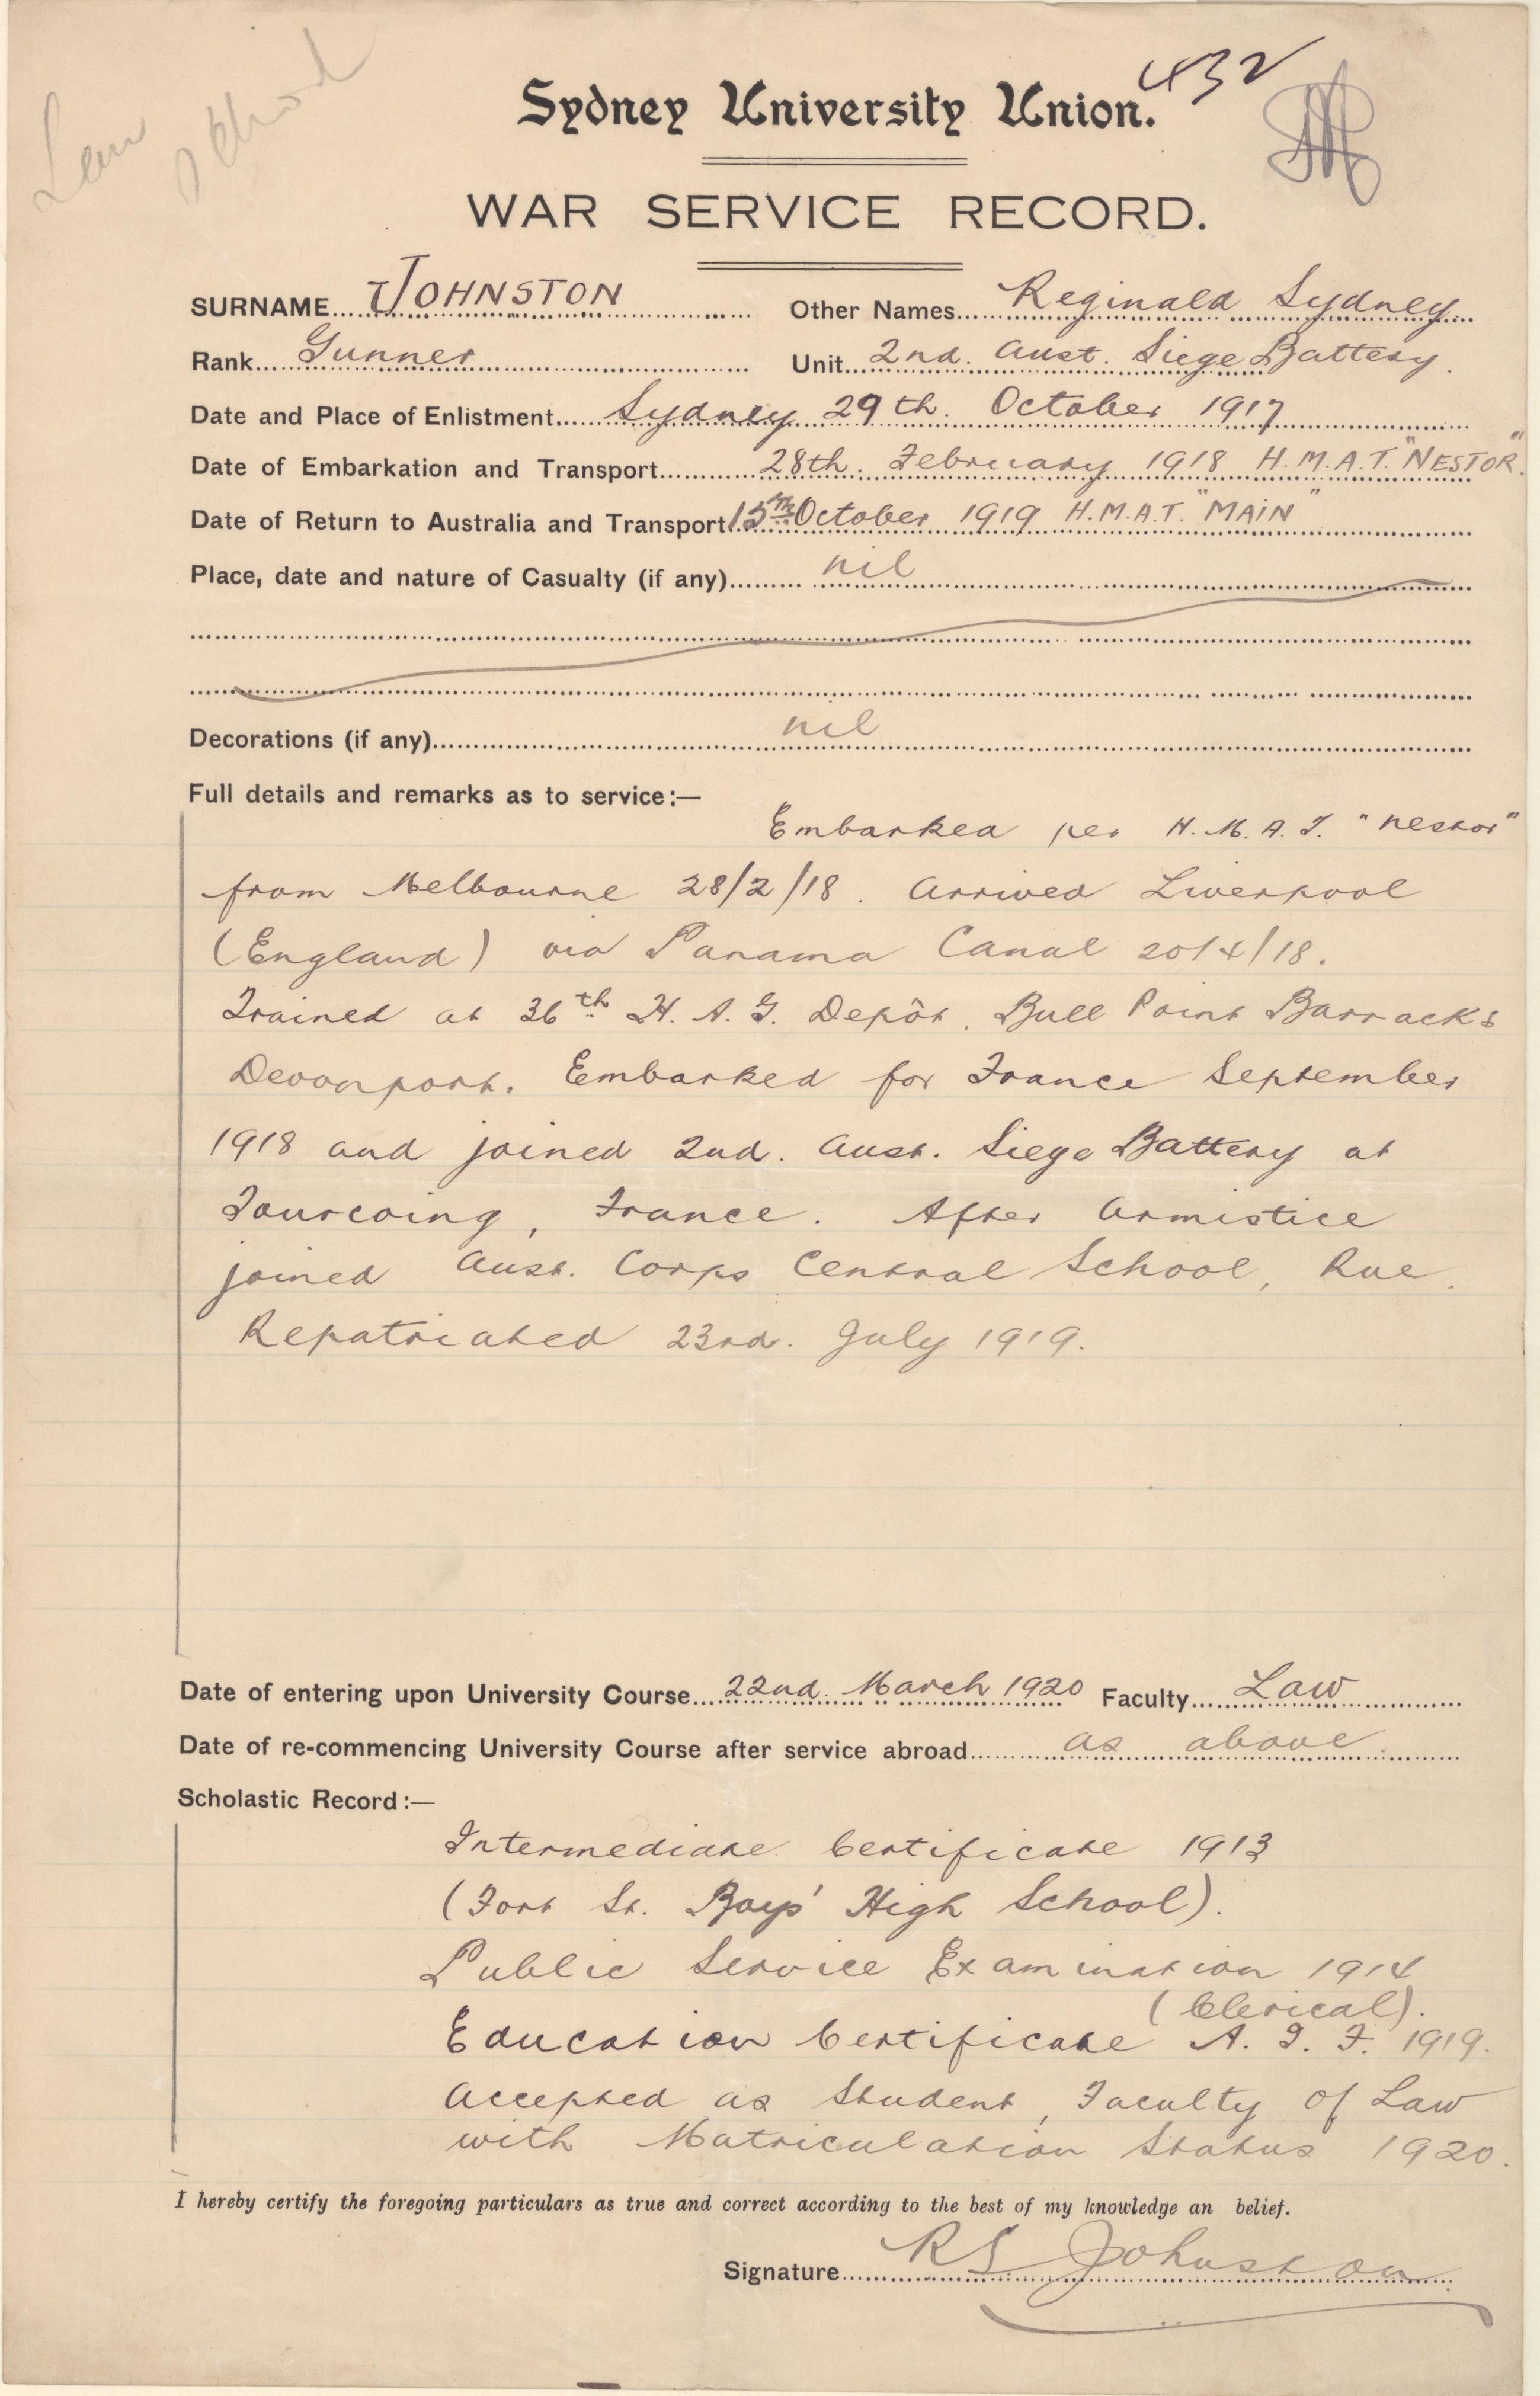 Law School
432
Sydney University Union.
WAR SERVICE RECORD.
SURNAME... JOHNSTON Other Names... Reginald Sydney
Rank... Gunner Unit... 2nd. Aust. Siege Battery.
Date and Place of Enlistment... Sydney 29th. October 1917
Date of Embarkation and Transport... 28th. February 1918 H.M.A.T. "NESTOR".
Date of Return to Australia and Transport... 15th October 1919 H.M.A.T. "MAIN"
Place, date and nature of Casualty (if any)... nil
Decorations (if any)... nil
Full details and remarks as to service:—
Embarked per H.M.A.T. "Nestor"
from Melbourne 28/2/18. Arrived Liverpool
(England) via Panama Canal 20/4/18.
Trained at 36th H.A.G. Depôt, Bull Point Barracks
Devonport. Embarked for France September
1918 and joined 2nd. Aust. Siege Battery at
Tourcoing, France. After Armistice
joined Aust. Corps Central School, Rue.
Repatriated 23rd. July 1919.
Date of entering upon University Course... 22nd. March 1920 Faculty... Law
Date of re-commencing University Course after service abroad... as above.
Scholastic Record:—
Intermediate Certificate 1913
(Fort St. Boys' High School).
Public Service Examination 1914
(Clerical).
Education Certificate A.I.F. 1919.
Accepted as Student, Faculty of Law
with Matriculation Status 1920.
I hereby certify the foregoing particulars as true and correct according to the best of my knowledge an belief.
Signature... RS Johnston